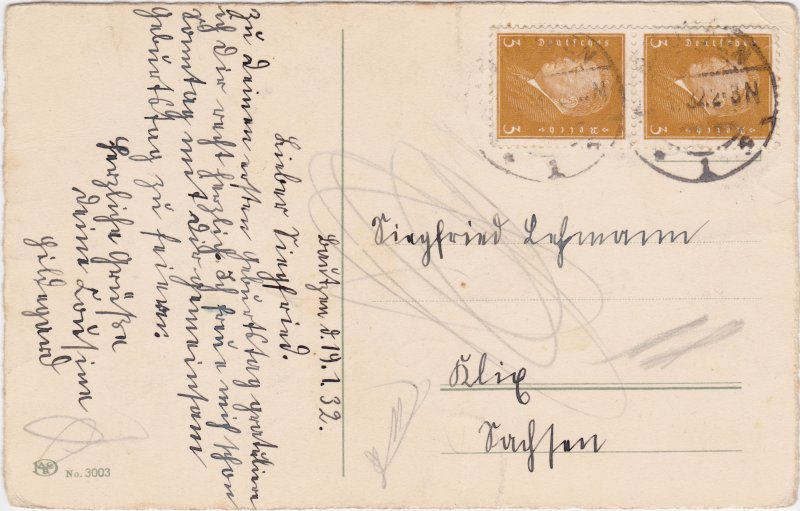 Bautzen d. 19.1.32.
Lieber Siegfried.
Zu deinem ersten Geburtstag gratuliere
ich dir recht herzlich. Ich freue mich schon
Sonntag mit dir gemeinsam
Geburtstag zu feiern.
Herzliche Grüße
Deine Cousine
Hildegard
Siegfried Lehmann
Klix
Sachsen
3 Deutsches Reich 3
3 Deutsches Reich 3
No. 3003